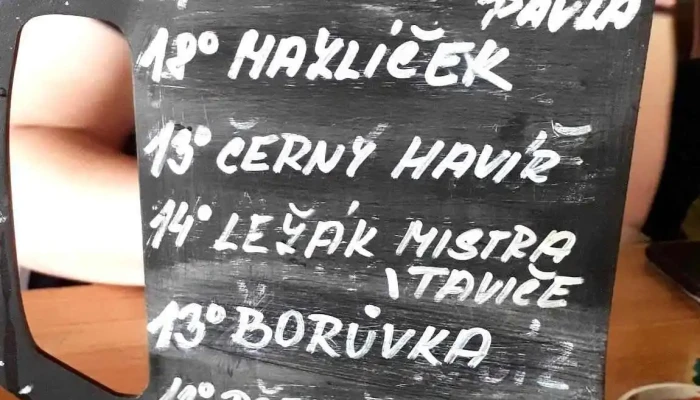 PAVLA
18° MAZLÍČEK
13° ČERNÝ HAVÍŘ
14° LEŽÁK MISTRA
TAVIČE
13° BORŮVKA